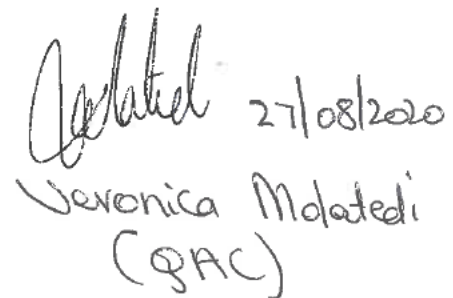 27/08/2020
Veronica Molatedi
(QAC)